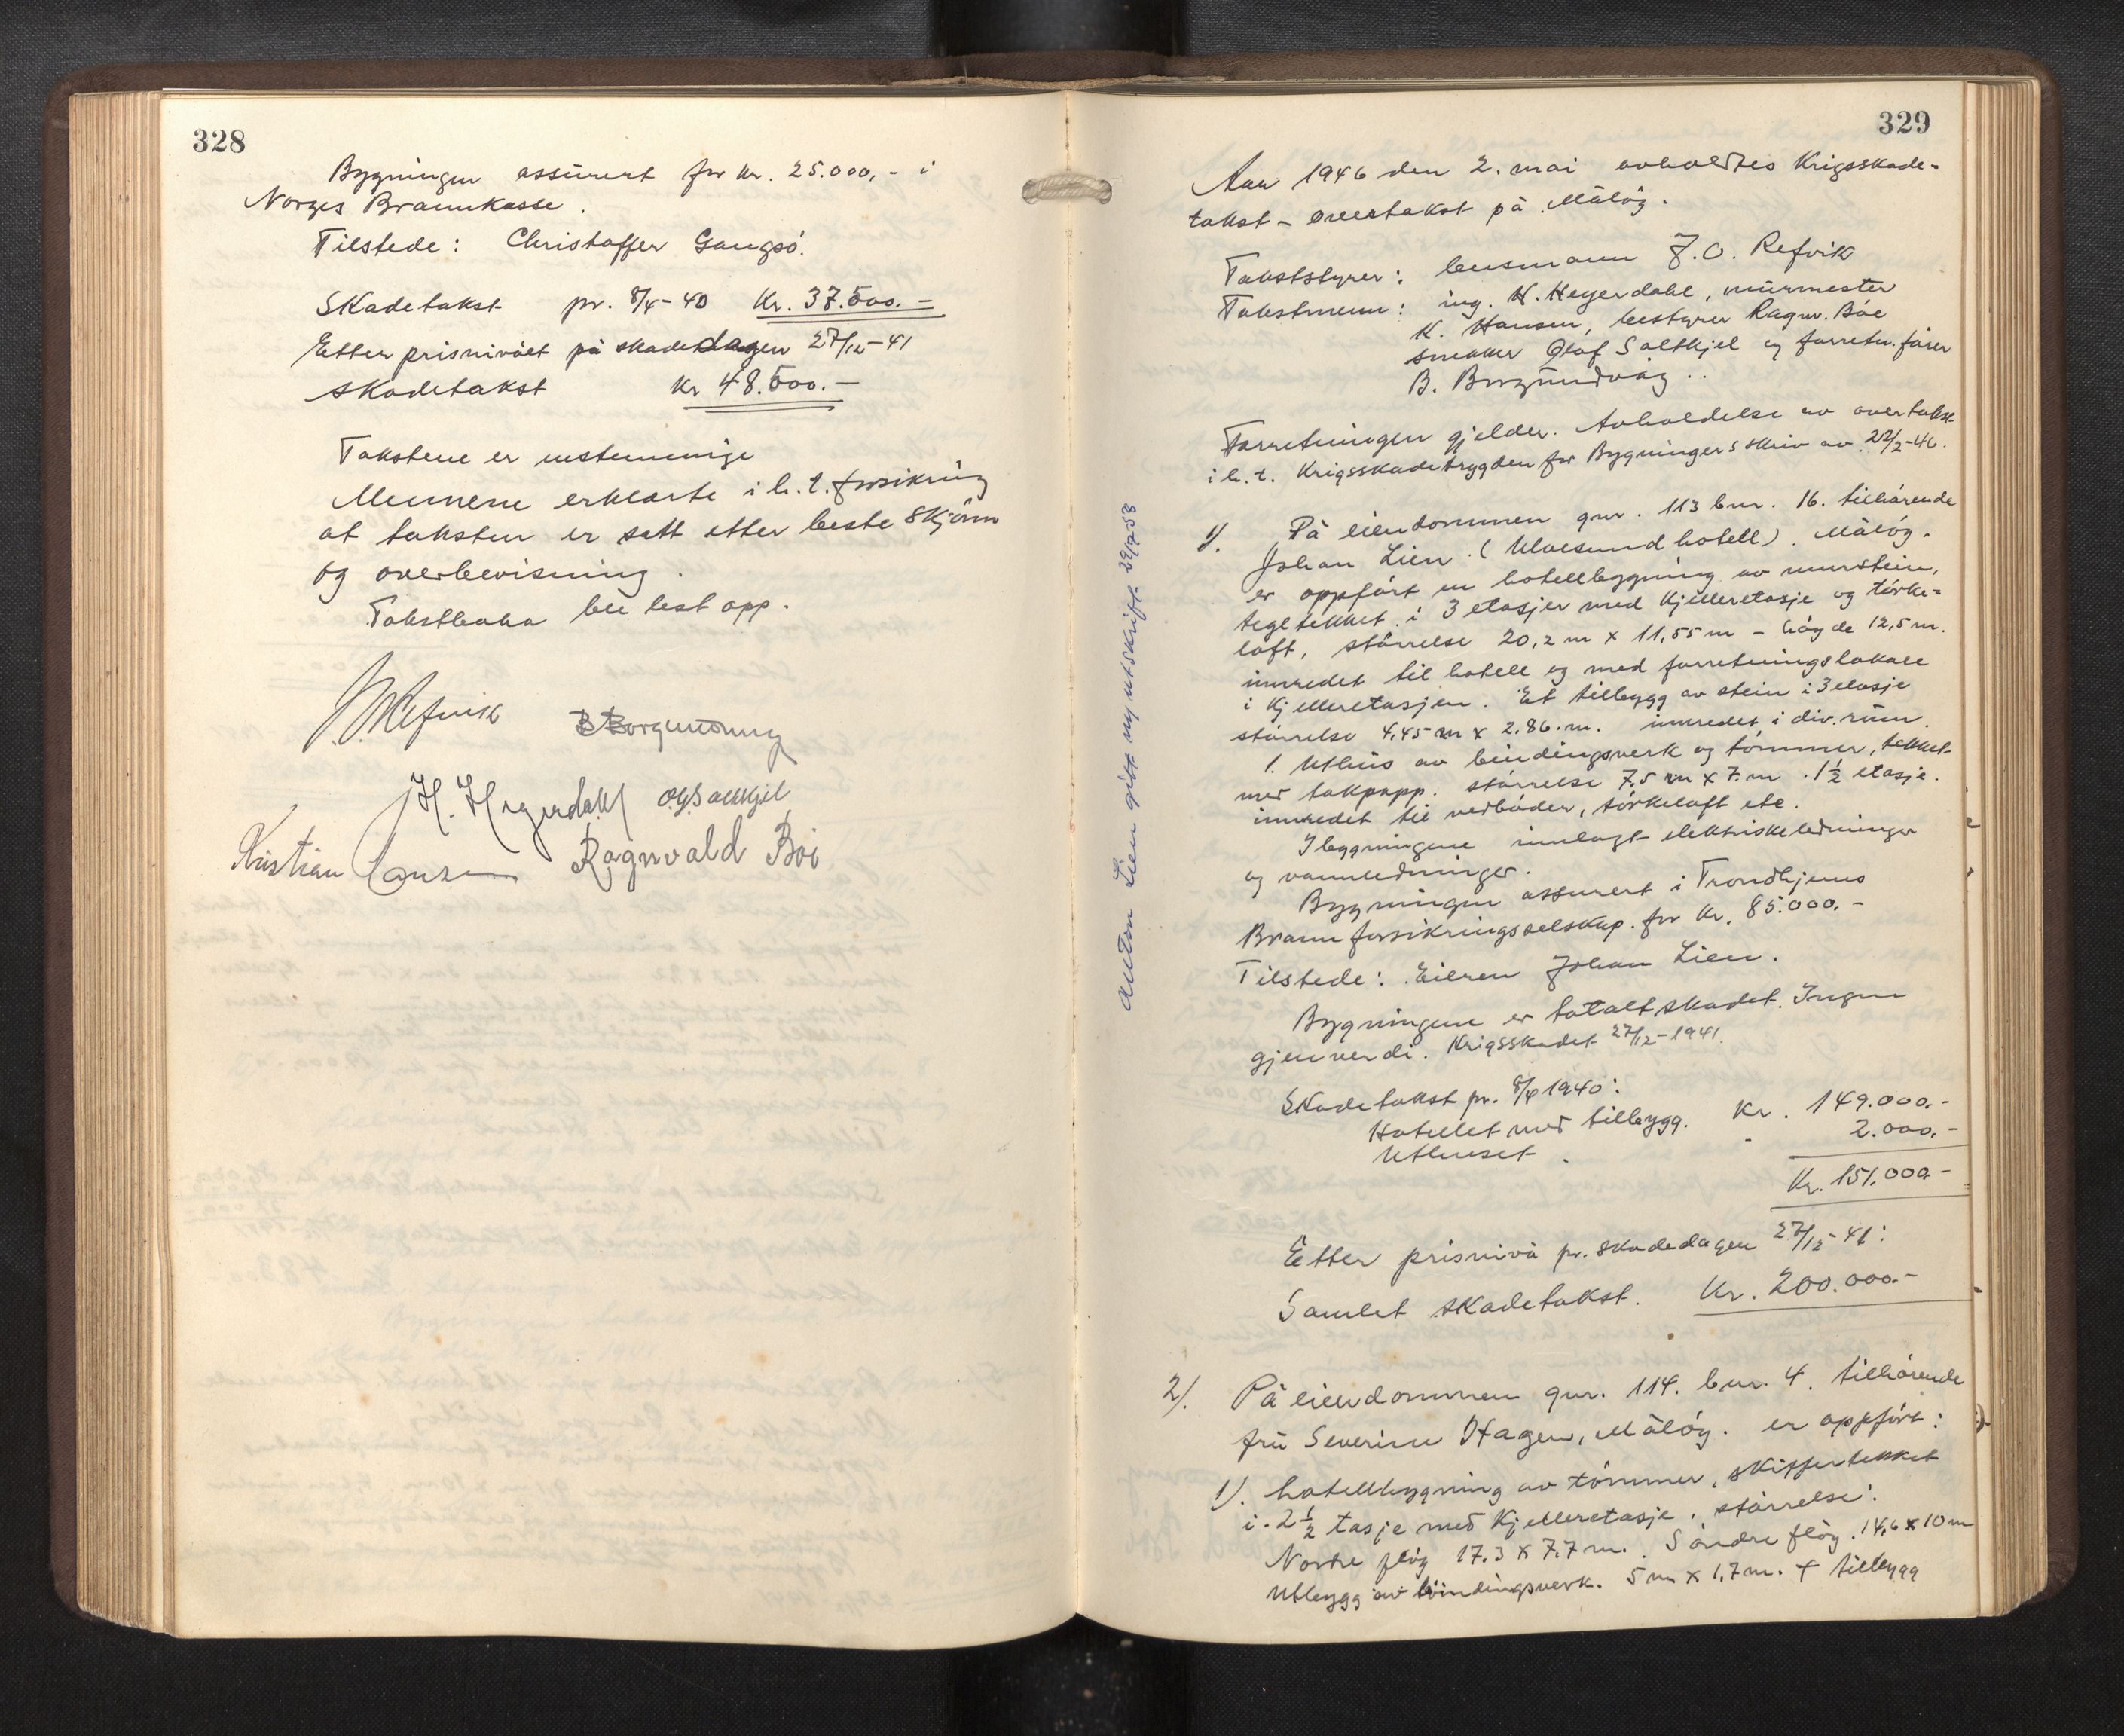 328
Bygningen assurert for kr. 25.000,- i
Norges Brannkasse.
Tilstede: Christoffer Gangsö.
Skadetakst pr. 8/4-40 Kr. 37.500.-
Etter prisnivået på skadedagen 27/12-41
skadetakst Kr 48.500.-
Takstene er enstemmige
Mennene erklærte i h.t. forsikring
at taksten er satt etter beste skjönn
og overbevisning.
Takstboka ble lest opp.
J.O. Refvik B Borgundvåg
H. Heyerdahl O.G. Saltkjel
Kristian Hansen Ragnvald Böe
329
Aar 1946 den 2. mai avholdtes Krigsskade-
takst - overtakst på Målöy.
Takststyrer: lensmann J.O. Refvik
Takstmenn: ing. H. Heyerdahl, murmester
K. Hansen, bestyrer Ragnv. Böe
snekker Olaf Saltkjel og forretn.förer
B. Borgundvåg..
Forretningen gjelder. Avholdelse av overtakst
i h.t. Krigsskadetrygden for Bygningers skriv av 22/2-46.
1). På eiendommen gnr. 113 bnr. 16. tilhörende
Johan Lien (Ulvesund hotell). Målöy.
er oppfört en hotellbygning av murstein,
tegltekket i 3 etasjer med kjelleretasje og törke-
loft, störrelse 20,2 m x 11,55 m - höyde 12,5 m.
innredet til hotell og med forretningslokale
i kjelleretasjen. Et tilbygg av stein i 3 etasje
störrelse 4,45 m x 2,86 m. innredet i div. rum.
1. Uthus av bindingsverk og tömmer, tekket
med takpapp. störrelse 7,5 m x 7 m. 1 1/2 etasje.
innredet til vedboder, törkeloft etc.
I bygningene innlagt elektriske ledninger
og vannledninger.
Bygningen assurert i Trondhjems
Brannforsikringsselskap. for Kr. 85.000.-
Tilstede: Eieren Johan Lien.
Bygningene er totalt skadet. Ingen
gjenverdi. Krigsskadet 27/12-1941.
Skadetakst pr. 8/4 1940:
Hotellet med tilbygg. Kr. 149.000.-
Uthuset. - 2.000.-
Kr. 151.000.-
Etter prisnivå pr. skadedagen 27/12-41:
Samlet skadetakst. Kr. 200.000.-
2). På eiendommen gnr. 114. bnr. 4. tilhörende
fru Severine Hagen, Målöy. er oppfört:
1). hotellbygning av tömmer, skiffertekket
i 2 1/2 tasje med kjelleretasje, störrelse:
Nordre flöy 17.3 x 7,7 m. Söndre flöy. 14,6 x 10 m
Utbygg av bindingsverk. 5 m x 1,7 m. + tilbygg
Anton Lien gitt ny utskrift